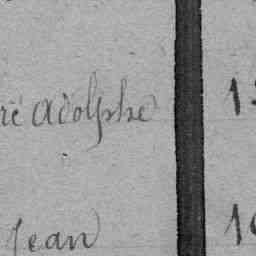 ré Adolphe 1
Jean 1